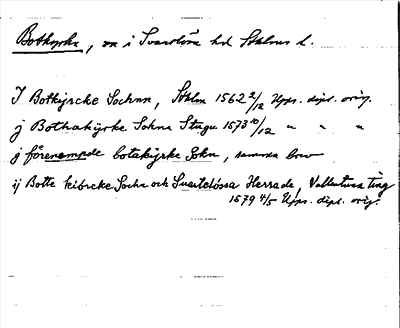 Botkyrka, sn i Svartlösa hd Sthlms l.
I Botkijrcke Sochnn, Sthlm 1562 2/12 Upps. dipl. orig.
j Bothakijrke Sokne Stugu 1573 10/12 " " "
j förenempde botakijrke Sokn, samma brev
ij Botte kiörcke Sochn och Suartelössa Herrade, Vallentuna ting
1579 4/5 Upps. dipl. orig.